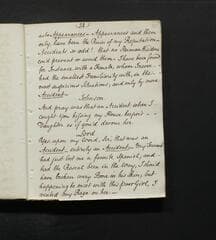 into Appearances – Appearances and them
only, have been the Ruin of my Reputation.
Accidents so odd! that no Human Wisdom
could prevent or avoid them. I have been found
for Instance, with a Female whom I never
had the smallest Familiarity with, in the
most suspicious Situations, and only by mere
Accident.
Johnson
And pray was that an Accident when I
caught you kissing my House keeper's
Daughter as if you'd devour her.
Lord
Yes upon my Word, Sir that was an
Accident, entirely an Accident – My Servant
had just lost me a favorite Spaniel, and
had the Rascal been in the way, I should
have broken every Bone in his Skin, but
happening to meet with this poor Girl, I
vented my Rage on her.